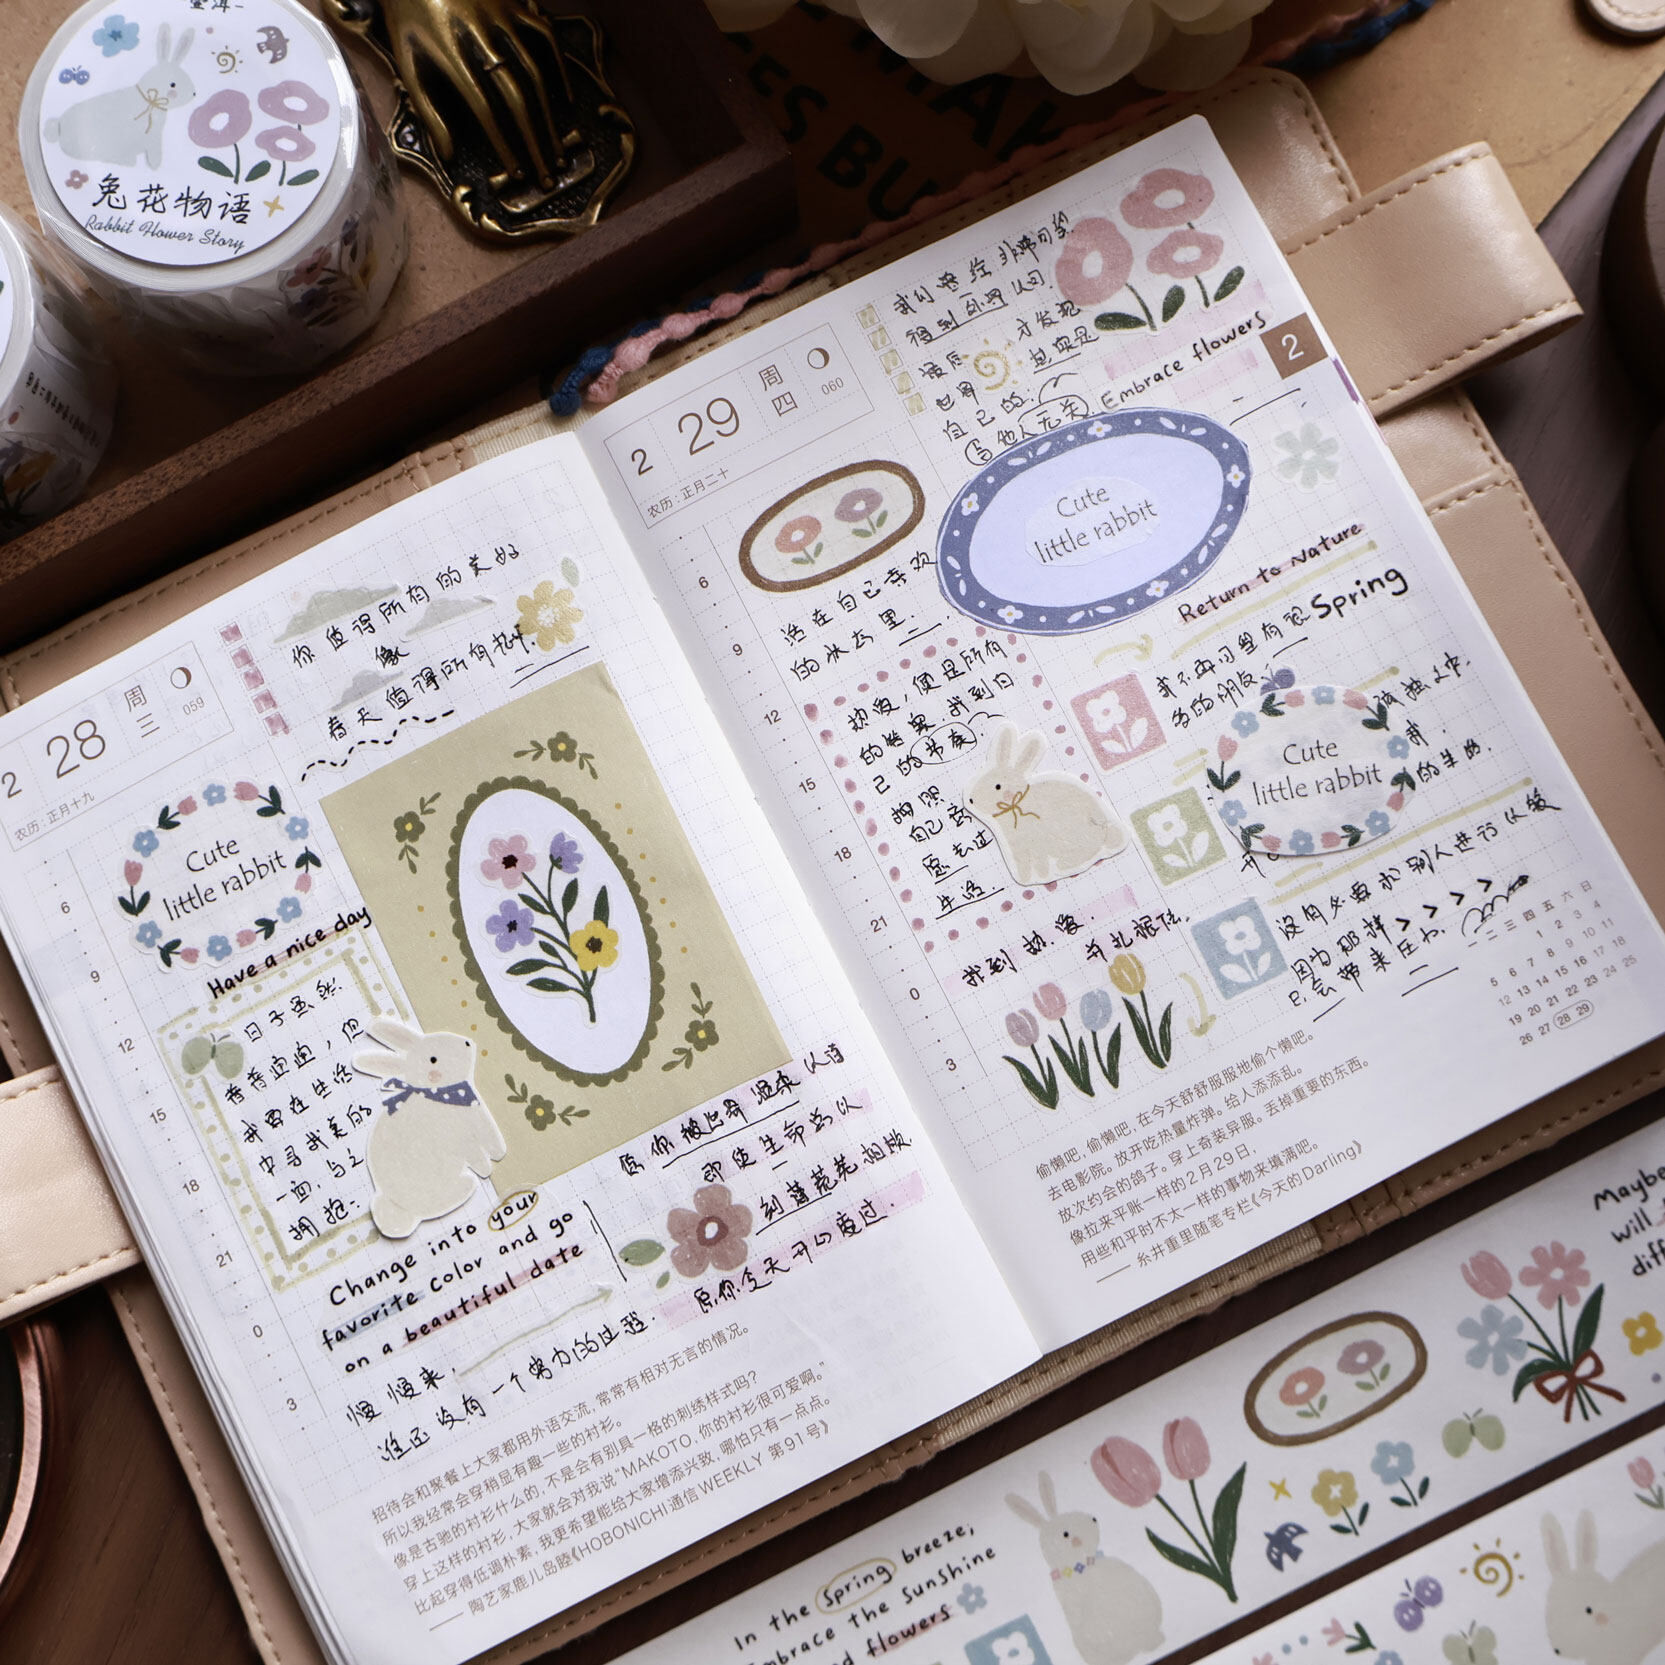 兔花物语
Rabbit Flower Story
2
28
周三
059
农历:正月十九
你值得所有的美好
像
春天值得所有
Cute
little rabbit
Have a nice day
日子虽然
普普通通,但
我要在生活
中寻找美的
一面,与之
拥抱:
6
9
12
15
18
21
0
3
Change into your
favorite color and go
on a beautiful date
愿你被世界温柔以待
即使生命总以
刻薄荒芜相欺
愿你今天开心度过.
慢慢来,
谁还没有一个努力的过程.
招待会和聚餐上大家都用外语交流,常常有相对无言的情况。
所以我经常会穿稍显有趣一些的衬衫。
像是古驰的衬衫什么的,不是会有别具一格的刺绣样式吗?
穿上这样的衬衫,大家就会对我说“MAKOTO,你的衬衫很可爱啊。”
比起穿得低调朴素,我更希望能给大家增添兴致,哪怕只有一点点。
——陶艺家鹿儿岛睦《HOBONICHI通信WEEKLY 第91号》
2
29
周四
060
农历:正月二十
我们曾经非常
得到外界认可.
最后 才发现
世界 其实是
自己的.
与他人无关.
Embrace flowers
2
Cute
little rabbit
6
9
12
15
18
21
0
3
活在自己喜欢
的状态里.
热爱,便是所有
的答案.找到自
己的节奏.
按照
自己意
愿去过
生活.
找到热爱. 并扎根住.
Return to Nature
Spring
我不再习惯有很
多的朋友
孤独
我.
的生活.
Cute
little rabbit
没有必要和别人进行比较
因为那样>>>>
只会带来压力.
一 二 三 四 五 六 日
1 2 3 4
5 6 7 8 9 10 11
12 13 14 15 16 17 18
19 20 21 22 23 24 25
26 27 28 29
偷懒吧,偷懒吧,在今天舒舒服服地偷个懒吧。
去电影院。放开吃热量炸弹。给人添添乱。
放次约会的鸽子。穿上奇装异服。丢掉重要的东西。
像拉来平账一样的2月29日,
用些和平时不太一样的事物来填满吧。
——糸井重里随笔专栏《今天的Darling》
Maybe
will
In the Spring breeze,
embrace the sunshine
flowers